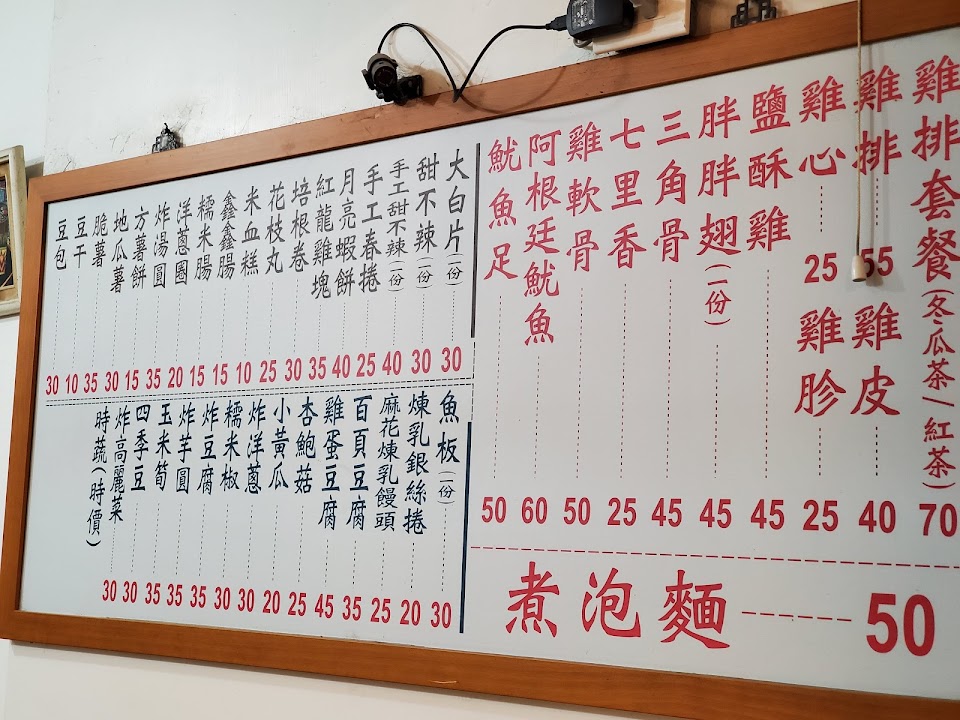 雞排套餐(冬瓜茶/紅茶) 70
雞排 55
雞皮 40
雞心 25
雞胗 25
鹽酥雞 45
胖胖翅(一份) 45
三角骨 45
七里香 25
雞軟骨 50
阿根廷魷魚 60
魷魚足 50
煮泡麵 50
大白片(一份) 30
甜不辣(一份) 30
手工甜不辣(一份) 40
手工春捲 25
月亮蝦餅 40
紅龍雞塊 35
培根卷 30
花枝丸 25
米血糕 10
鑫鑫腸 15
糯米腸 15
洋蔥圈 20
炸湯圓 35
方薯餅 15
地瓜薯 30
脆薯 35
豆干 10
豆包 30
魚板(一份) 30
煉乳銀絲捲 20
麻花煉乳饅頭 25
百頁豆腐 35
雞蛋豆腐 45
杏鮑菇 25
小黃瓜 20
炸洋蔥 30
糯米椒 30
炸豆腐 35
炸芋圓 35
玉米筍 35
四季豆 30
炸高麗菜 30
時蔬(時價)